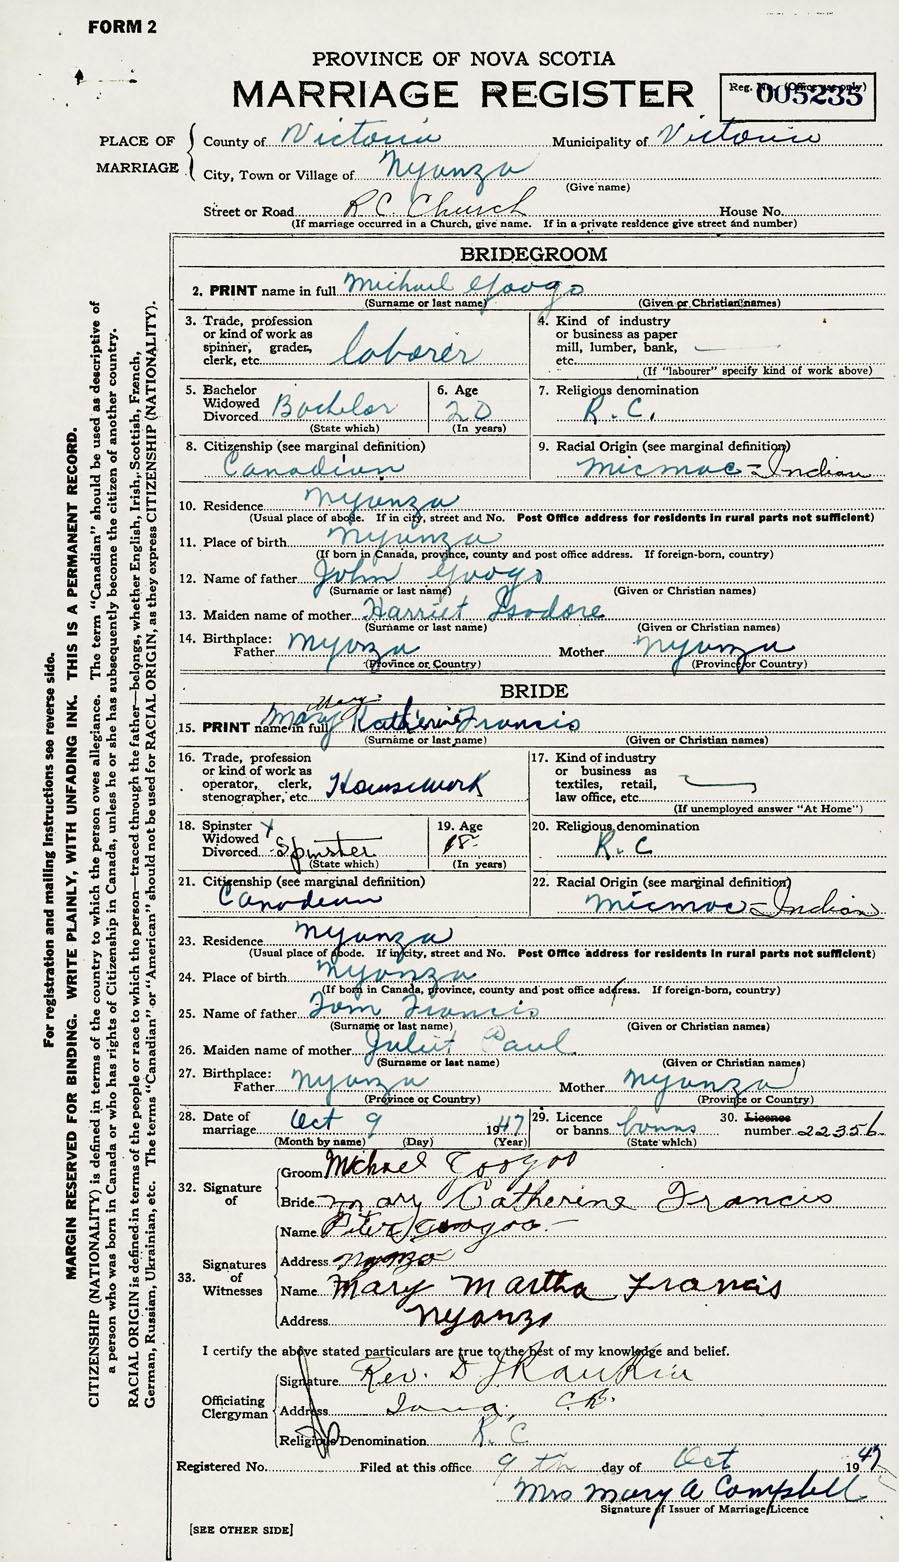 FORM 2
PROVINCE OF NOVA SCOTIA
MARRIAGE REGISTER
Reg. No. (Office use only)
005235
PLACE OF MARRIAGE
County of Victoria Municipality of Victoria
City, Town or Village of Nyanza
(Give name)
Street or Road R.C. Church House No.
(If marriage occurred in a Church, give name. If in a private residence give street and number)
BRIDEGROOM
2. PRINT name in full Michael Googo
(Surname or last name) (Given or Christian names)
3. Trade, profession or kind of work as spinner, grader, clerk, etc. laborer
4. Kind of industry or business as paper mill, lumber, bank, etc.
(If "labourer" specify kind of work above)
5. Bachelor Widowed Divorced Bachelor
(State which)
6. Age 20
(In years)
7. Religious denomination
R.C.
8. Citizenship (see marginal definition)
Canadian
9. Racial Origin (see marginal definition)
Micmac - Indian
10. Residence Nyanza
(Usual place of abode. If in city, street and No. Post Office address for residents in rural parts not sufficient)
11. Place of birth Nyanza
(If born in Canada, province, county and post office address. If foreign-born, country)
12. Name of father John Googo
(Surname or last name) (Given or Christian names)
13. Maiden name of mother Harriet Isodore
(Surname or last name) (Given or Christian names)
14. Birthplace:
Father Nyanza Mother Nyanza
(Province or Country) (Province or Country)
BRIDE
Mary
15. PRINT name in full Mary Katherine Francis
(Surname or last name) (Given or Christian names)
16. Trade, profession or kind of work as operator, clerk, stenographer, etc. Housework
17. Kind of industry or business as textiles, retail, law office, etc.
(If unemployed answer "At Home")
18. Spinster x Widowed Divorced Spinster
(State which)
19. Age 18
(In years)
20. Religious denomination
R.C
21. Citizenship (see marginal definition)
Canadian
22. Racial Origin (see marginal definition)
Micmac - Indian
23. Residence Nyanza
(Usual place of abode. If in city, street and No. Post Office address for residents in rural parts not sufficient)
24. Place of birth Nyanza
(If born in Canada, province, county and post office address. If foreign-born, country)
25. Name of father Tom Francis
(Surname or last name) (Given or Christian names)
26. Maiden name of mother Juliet Paul
(Surname or last name) (Given or Christian names)
27. Birthplace:
Father Nyanza Mother Nyanza
(Province or Country) (Province or Country)
28. Date of marriage Oct 9 1947
(Month by name) (Day) (Year)
29. Licence or banns banns
(State which)
30. Licence number 22356
32. Signature of
Groom Michael Googoo
Bride Mary Catherine Francis
33. Signatures of Witnesses
Name Peter Googoo
Address Nyanza
Name Mary Martha Francis
Address Nyanza
I certify the above stated particulars are true to the best of my knowledge and belief.
Officiating Clergyman
Signature Rev. D J Rankin
Address Iona, C.B.
Religious Denomination R.C
Registered No. Filed at this office 9th day of Oct 1947
Mrs Mary A Campbell
Signature of Issuer of Marriage Licence
[SEE OTHER SIDE]
For registration and mailing Instructions see reverse side.
MARGIN RESERVED FOR BINDING. WRITE PLAINLY, WITH UNFADING INK. THIS IS A PERMANENT RECORD.
CITIZENSHIP (NATIONALITY) is defined in terms of the country to which the person owes allegiance. The term "Canadian" should be used as descriptive of
a person who was born in Canada or who has rights of Citizenship in Canada, unless he or she has subsequently become the citizen of another country.
RACIAL ORIGIN is defined in terms of the people or race to which the person—traced through the father—belongs, whether English, Irish, Scottish, French,
German, Russian, Ukrainian, etc. The terms "Canadian" or "American" should not be used for RACIAL ORIGIN, as they express CITIZENSHIP (NATIONALITY).